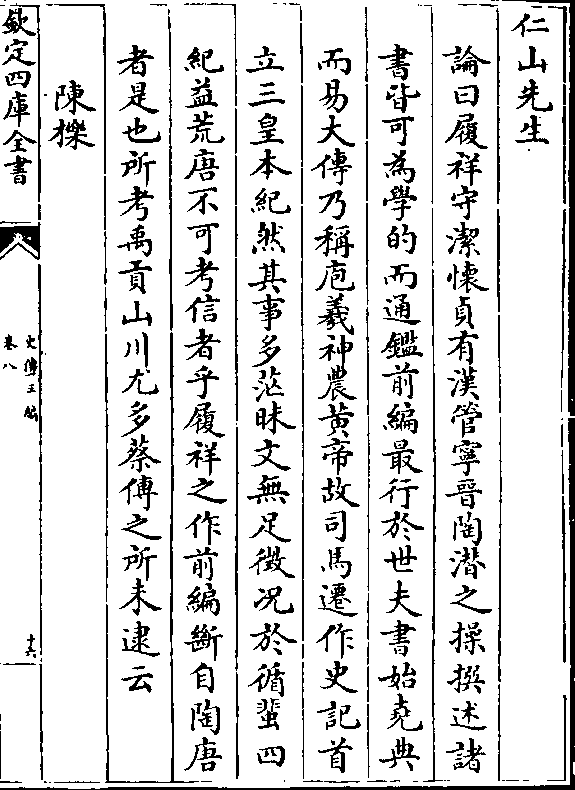 仁山先生
論曰履祥守潔懷貞有漢管寧晉陶潛之操撰述諸
書皆可為學的而通鑑前編最行於世夫書始堯典
而易大傳乃稱庖羲神農黄帝故司馬遷作史記首
立三皇本紀然其事多茫昧文無足徴况於循蜚四
紀益荒唐不可考信者乎履祥之作前編斷自陶唐
者是也所考禹貢山川尤多蔡傳之所未逮云
陳櫟
欽定四庫全書
史傳三編
卷八
十六